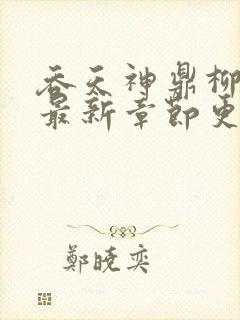 吞天神鼎柳
最新章節更
鄭曉奕